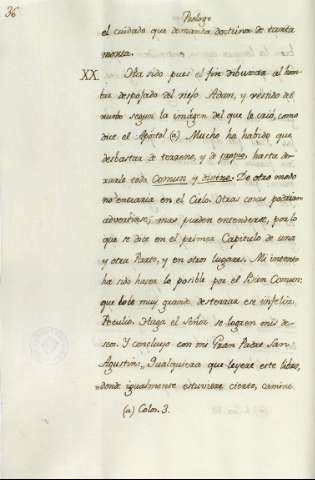 36
Prologo
el cuidado que demanda doctrina de tanta
monta.
XX. Ha sido pues el fin dibuxar al hom
bre despojado del viejo Adam, y vestido del
nuebo segun la imágen del que le crió, como
dice el Apóstol (a) Mucho ha habido que
desbastar de terreno, y de propio, hasta de-
xarle todo Comun y divino. De otro modo
no entraria en el Cielo. Otras cosas podrian
advertirse; mas pueden entenderse, por lo
que se dice en el primer Capitulo de una
y otra Parte, y en otros lugares. Mi intento
ha sido hacer lo posible por el Bien Comun:
que lo es muy grande desterrar este infeliz
Peculio. Haga el Señor se logren mis de-
seos. Y concluyo con mi Gran Padre San
Agustin: Qualquiera que leyere este libro,
donde igualmente estuviere cierto, camine
(a) Colos. 3.